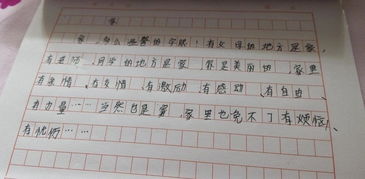 家
家,多么温馨的字眼!有父母的地方是家,
有老师、同学的地方是家。家是美丽的,家里
有亲情、有友情、有激励、有感动、有自由、
有力量……当然也是家,家里也免不了有烦恼、
有忧伤……